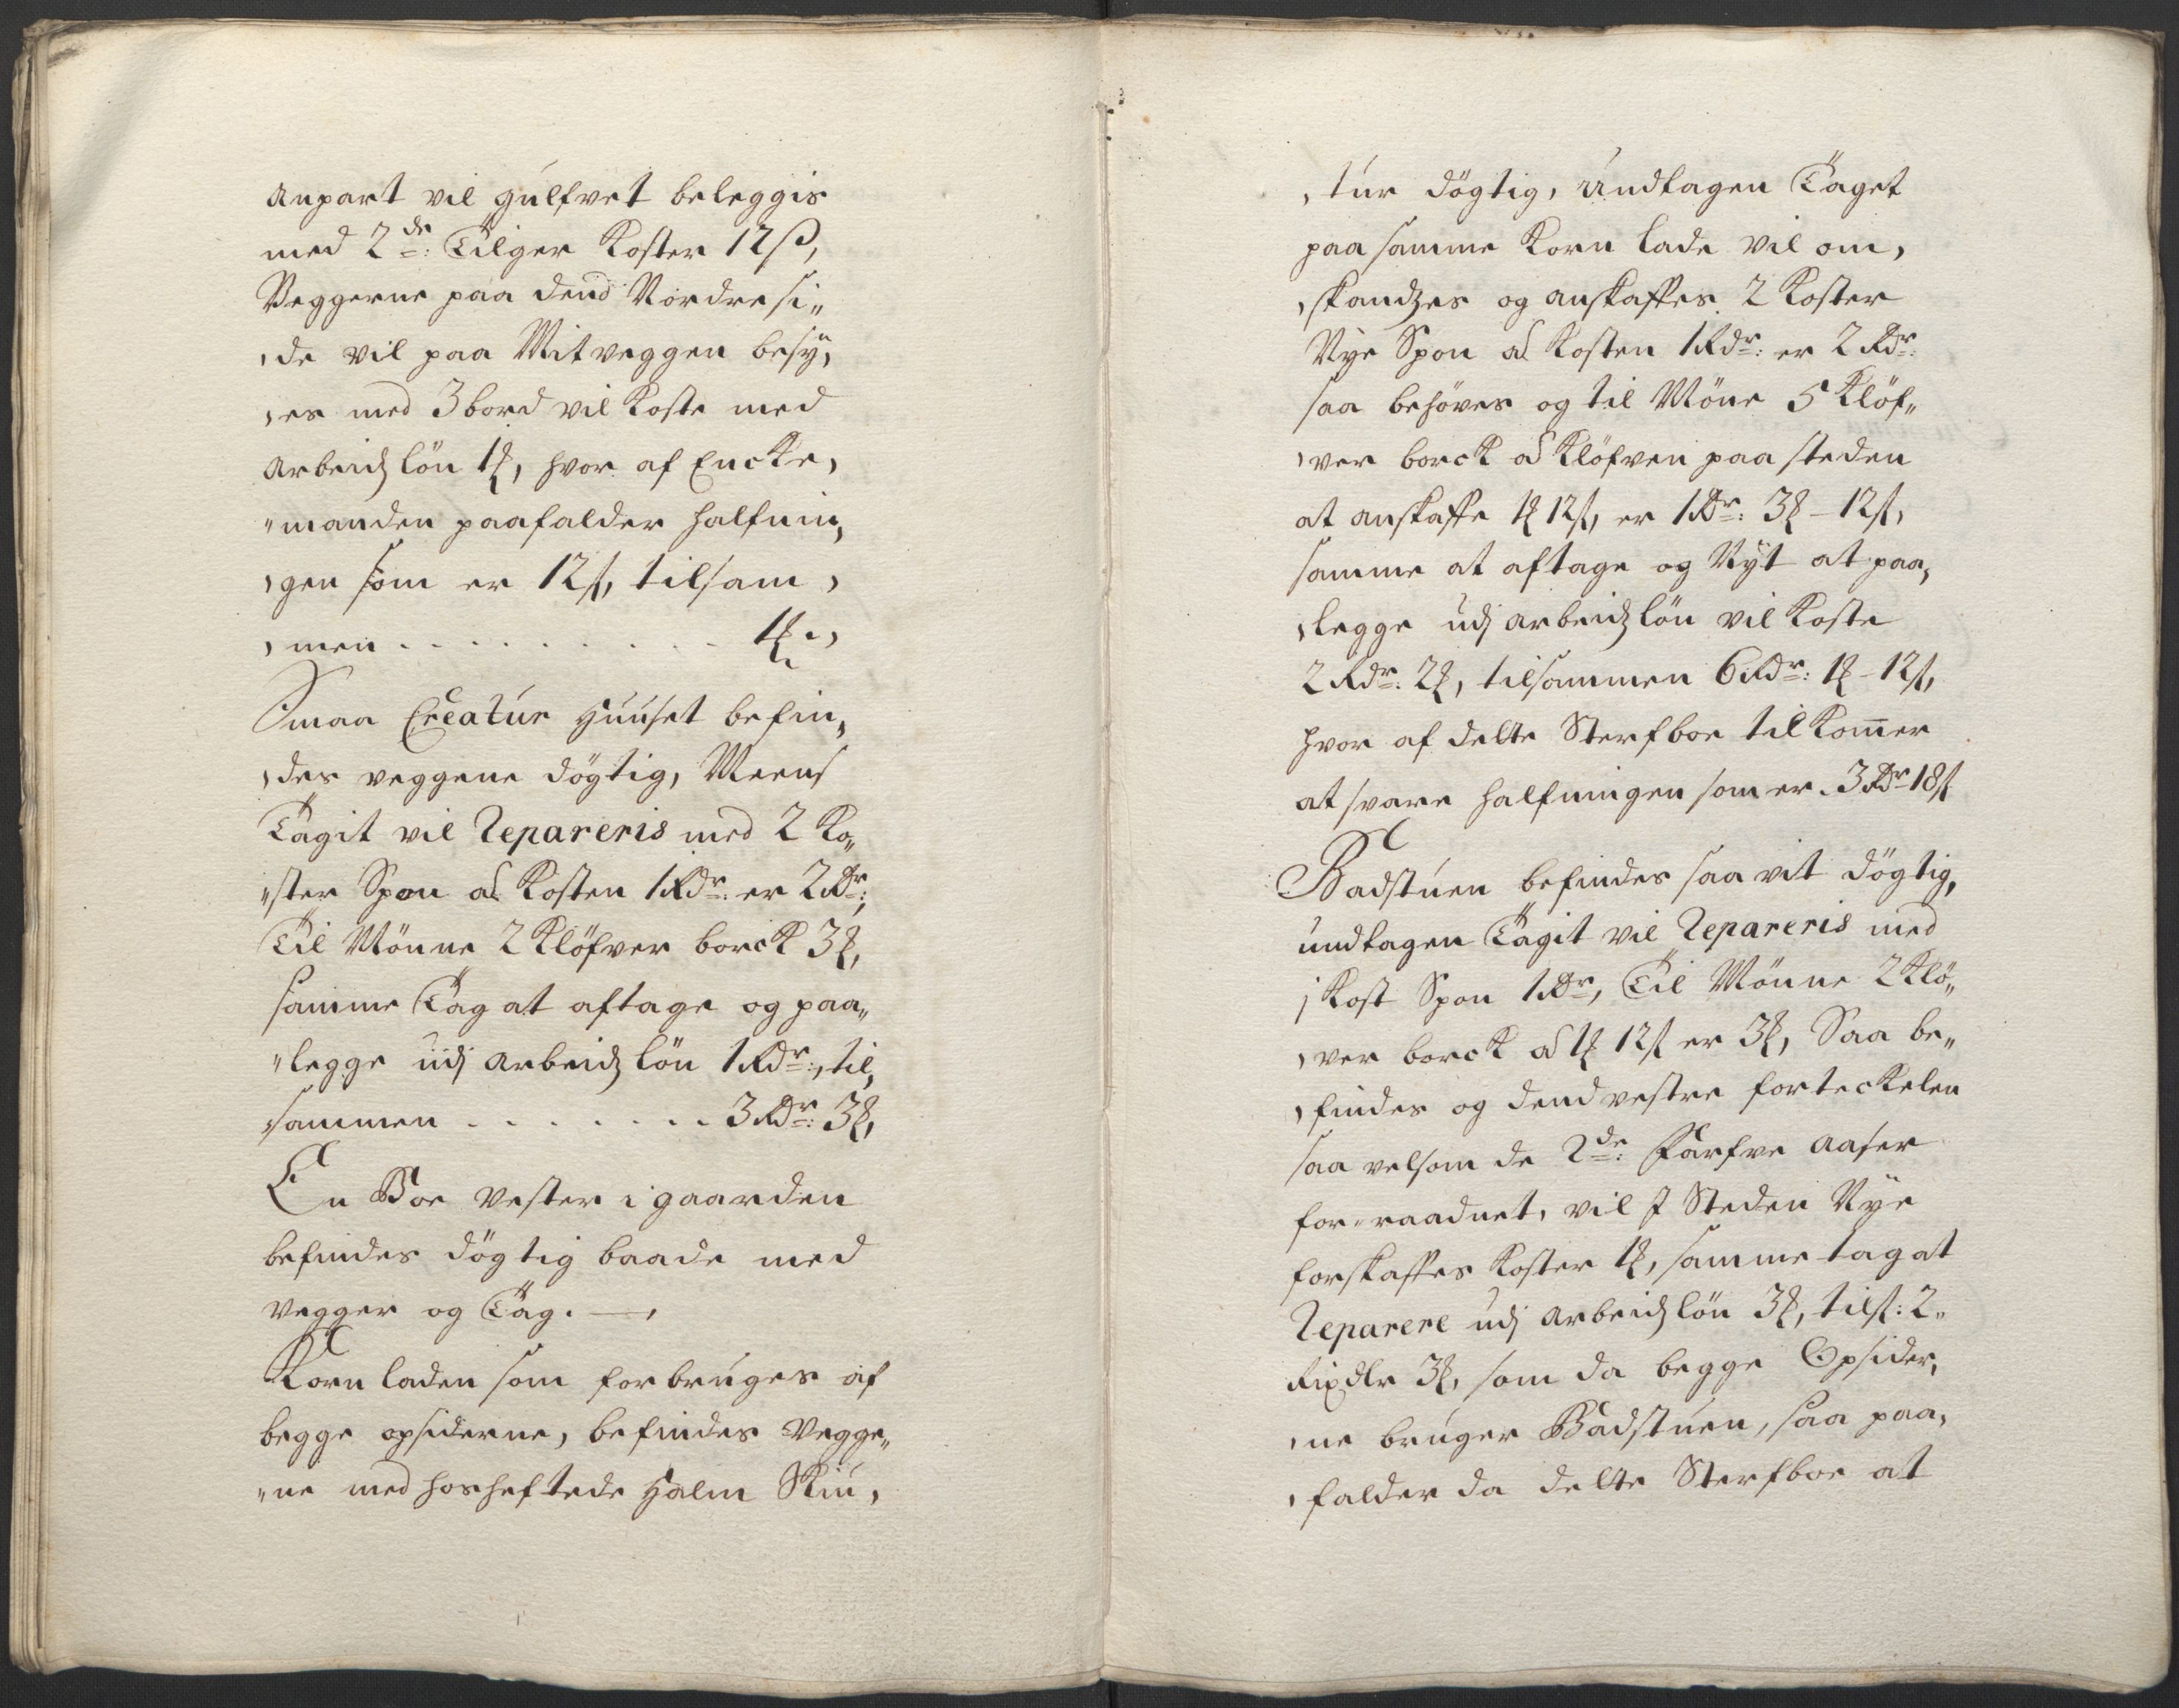 anpart vil gulfvet beleggis
med 2de: Tilger Koster 12 ß,
Veggerne paa dend Nordre si„
„de vil paa Mitveggen besÿ„
„es med 3 bord vil Koste med
arbeidzlön 1 ort, hvor af Encke„
„manden paafalder halfnin„
„gen som er 12 ß, tilsam„
„men . . . . . . . . . 1 ort.„
Smaa Creatur Huuset befin„
„des veggene dögtig, Meens
Tagit vil Repareris med 2 Ko„
„ster Spon a Kosten 1 Rdr: er 2 Rdr:,
Til Mönne 2 Klöfver borck 3 ort,
samme Tag at aftage og paa„
„legge udj arbeidzlön 1 Rdr:, til„
sammen . . . . . . . 3 Rdr: 3 ort,
En Boe vester i gaarden
befindes dögtig baade med
Vegger og Tag. —,
Kornladen som forbruges af
begge opsiderne, befindes Vegge„
„ne med hosheftede Halm Skiu„
„tur dögtig, Undtagen Taget
paa samme Korn lade vil om„
„skandzes og anskaffes 2 Koster
Nÿe Spon a Kosten 1 Rdr: er 2 Rdr:
saa behöves og til Möne 5 Klöf„
„ver borck a Klöfven paa steden
at anskaffe 1 ort 12 ß, er 1 Rdr: 3 ort - 12 ß,
samme at aftage og Nÿt at paa„
„legge udj arbeidzlön vil Koste
2 Rdr: 2 ort, tilsammen 6 Rdr: 1 ort - 12 ß,
hvor af dette Sterfboe tilKom̄er
at svare halfningen som er. 3 Rdr 18 ß
Badstuen befindes saa vit dögtig,
undtagen Tagit vil Repareris med
1 Kost Spon 1 Rdr, Til Mönne 2 Klö„
„ver borck a 1 ort 12 ß er 3 ort, Saa be„
„findes og dend vestre forteckelen
saa velsom de 2de: Farfve Aaser
for„raadnet, vil I Steden Nÿe
forskaffes Koster 1 ort, samme tag at
Reparere udj arbeidzlön 3 ort, tilß: 2„
Rixdlr 3 ort, som da begge Opsider„
„ne bruger Badstuen, saa paa„
„falder da dette Sterfboe at